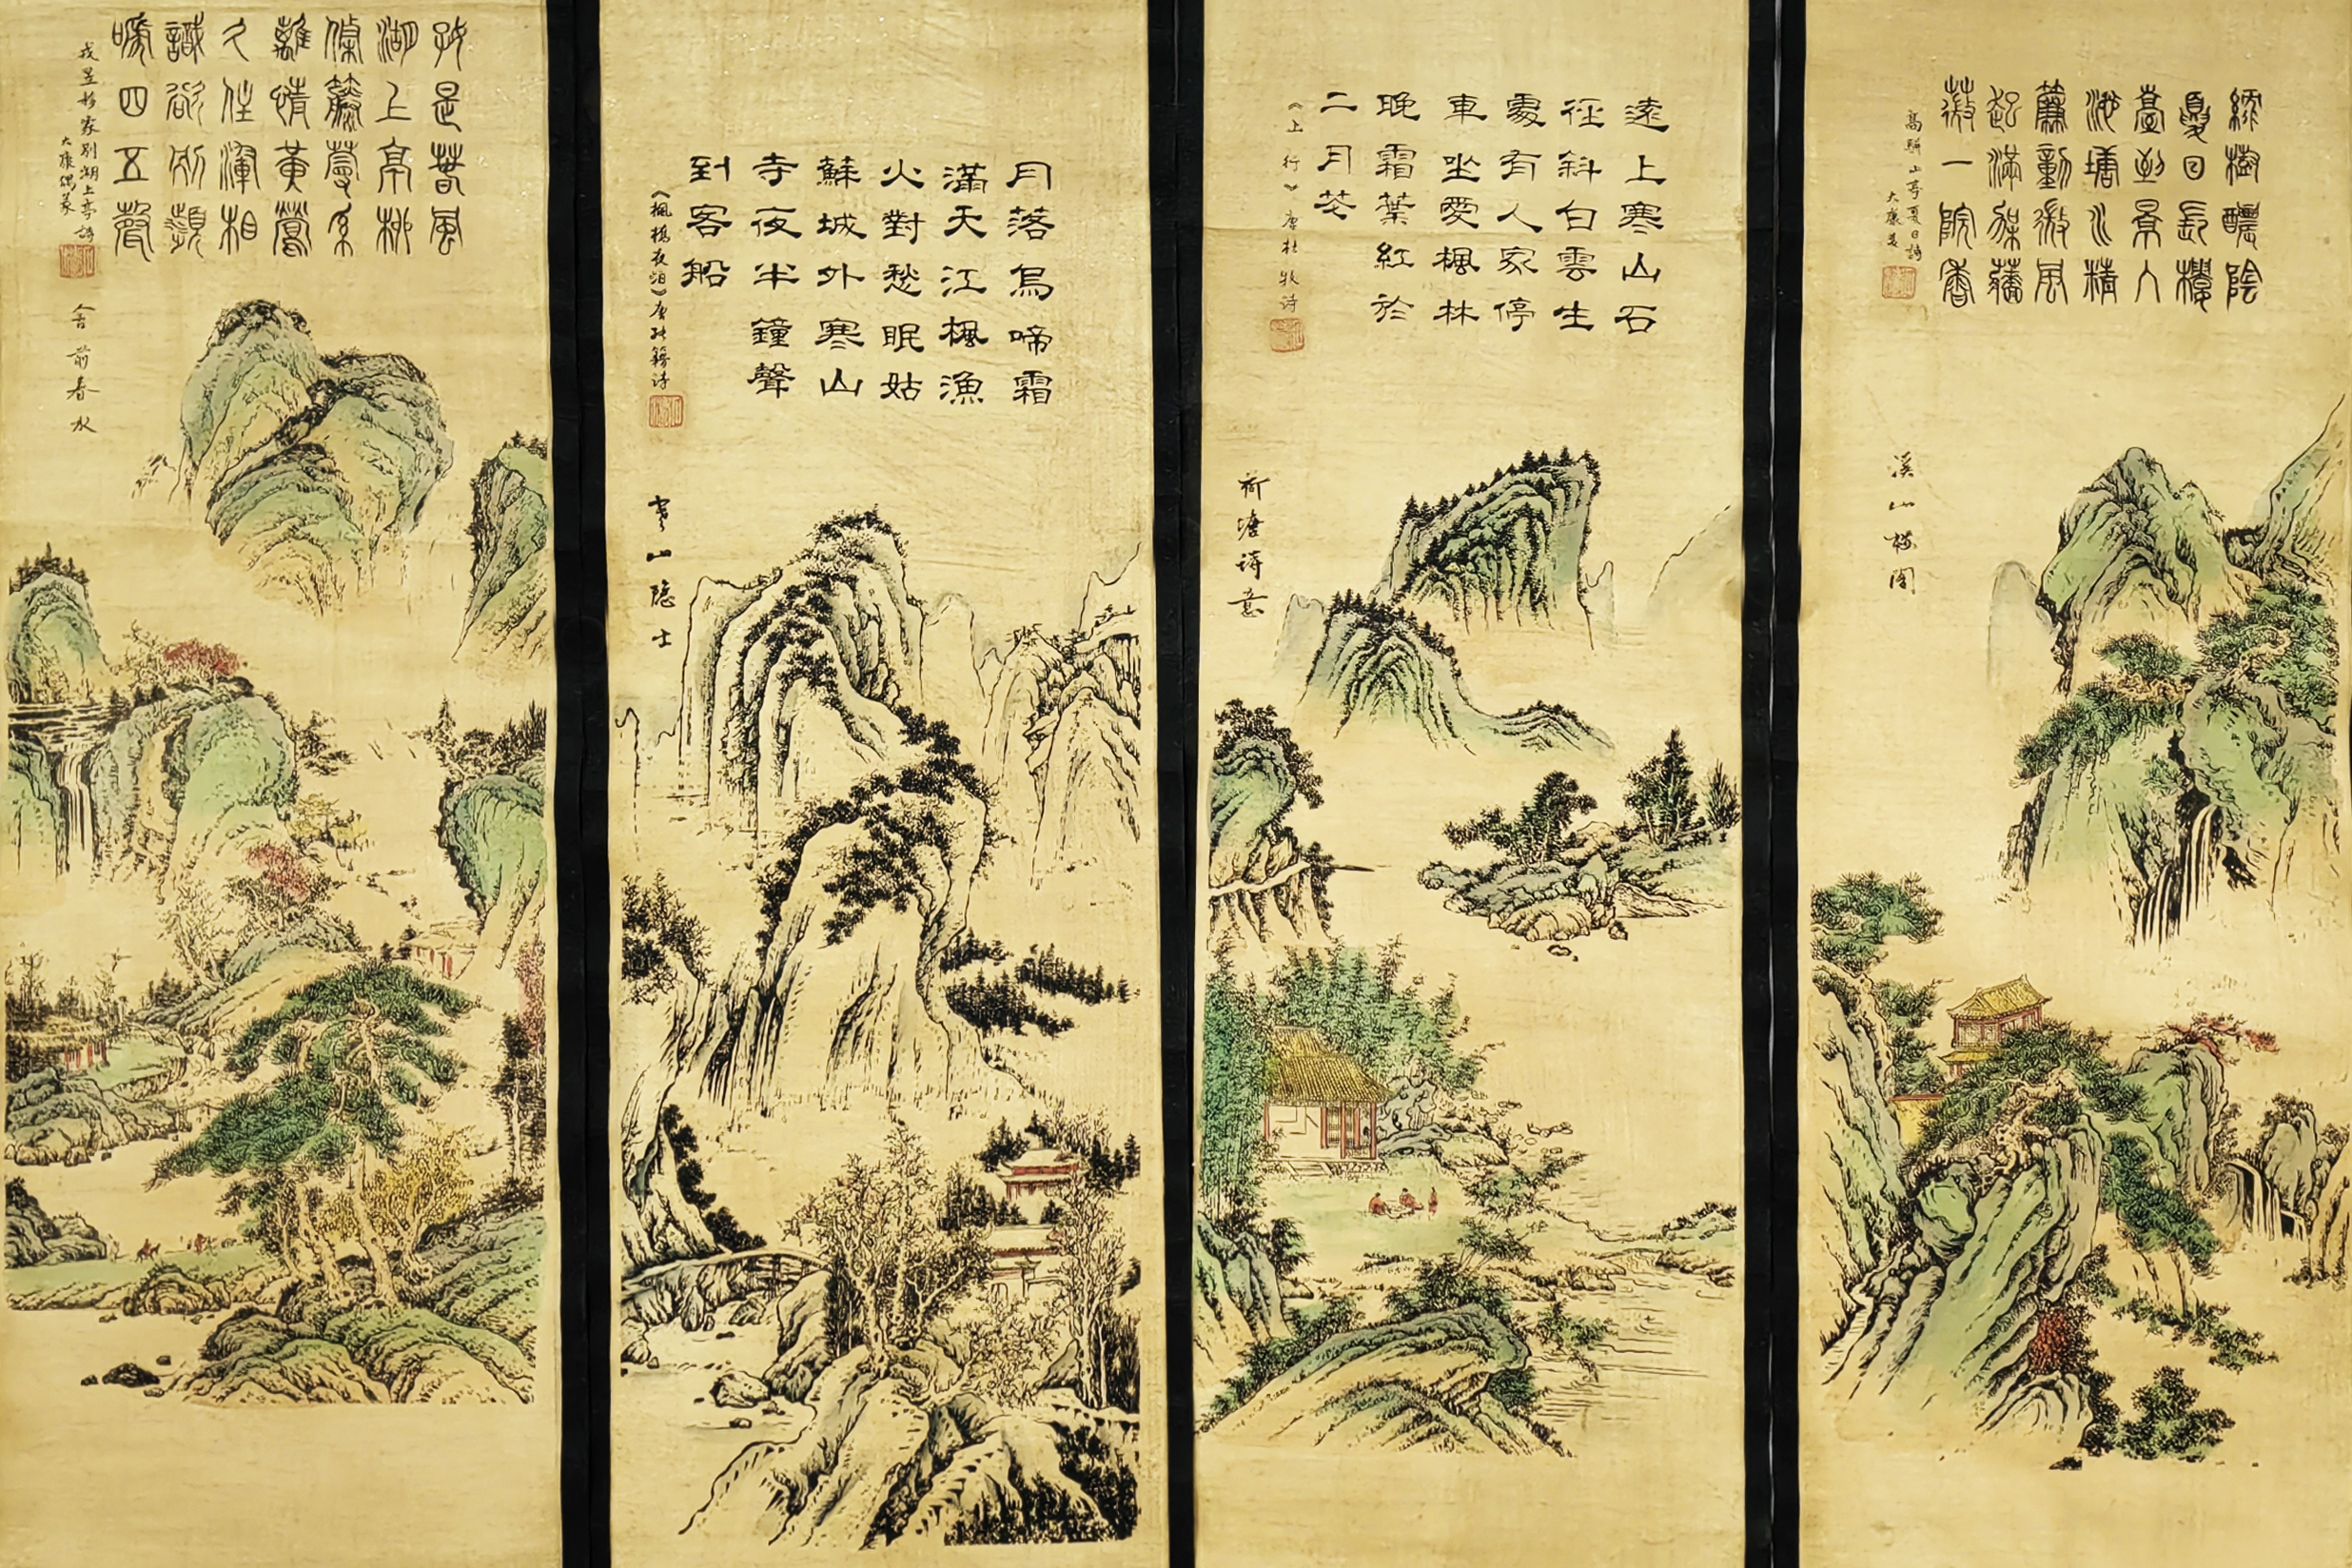 綠樹醲陰
夏日長樓
臺到景入
池塘水精
簾動微風
起滿架薔
薇一院香
高駢山亭夏日詩
大康
溪山楼阁
遠上寒山石
徑斜白雲生
處有人家停
車坐愛楓林
晚霜葉紅於
二月花
《上行》唐杜牧诗
荷塘诗意
月落烏啼霜
滿天江楓漁
火對愁眠姑
蘇城外寒山
寺夜半鐘聲
到客船
《楓橋夜泊》唐张籍诗
山隐士
好是春風
湖上亭柳
條藤蔓系
離情黄鶯
久住渾相
識欲別頻
啼四五聲
戎昱移家别湖上亭詩
大康偶篆
舍前春水